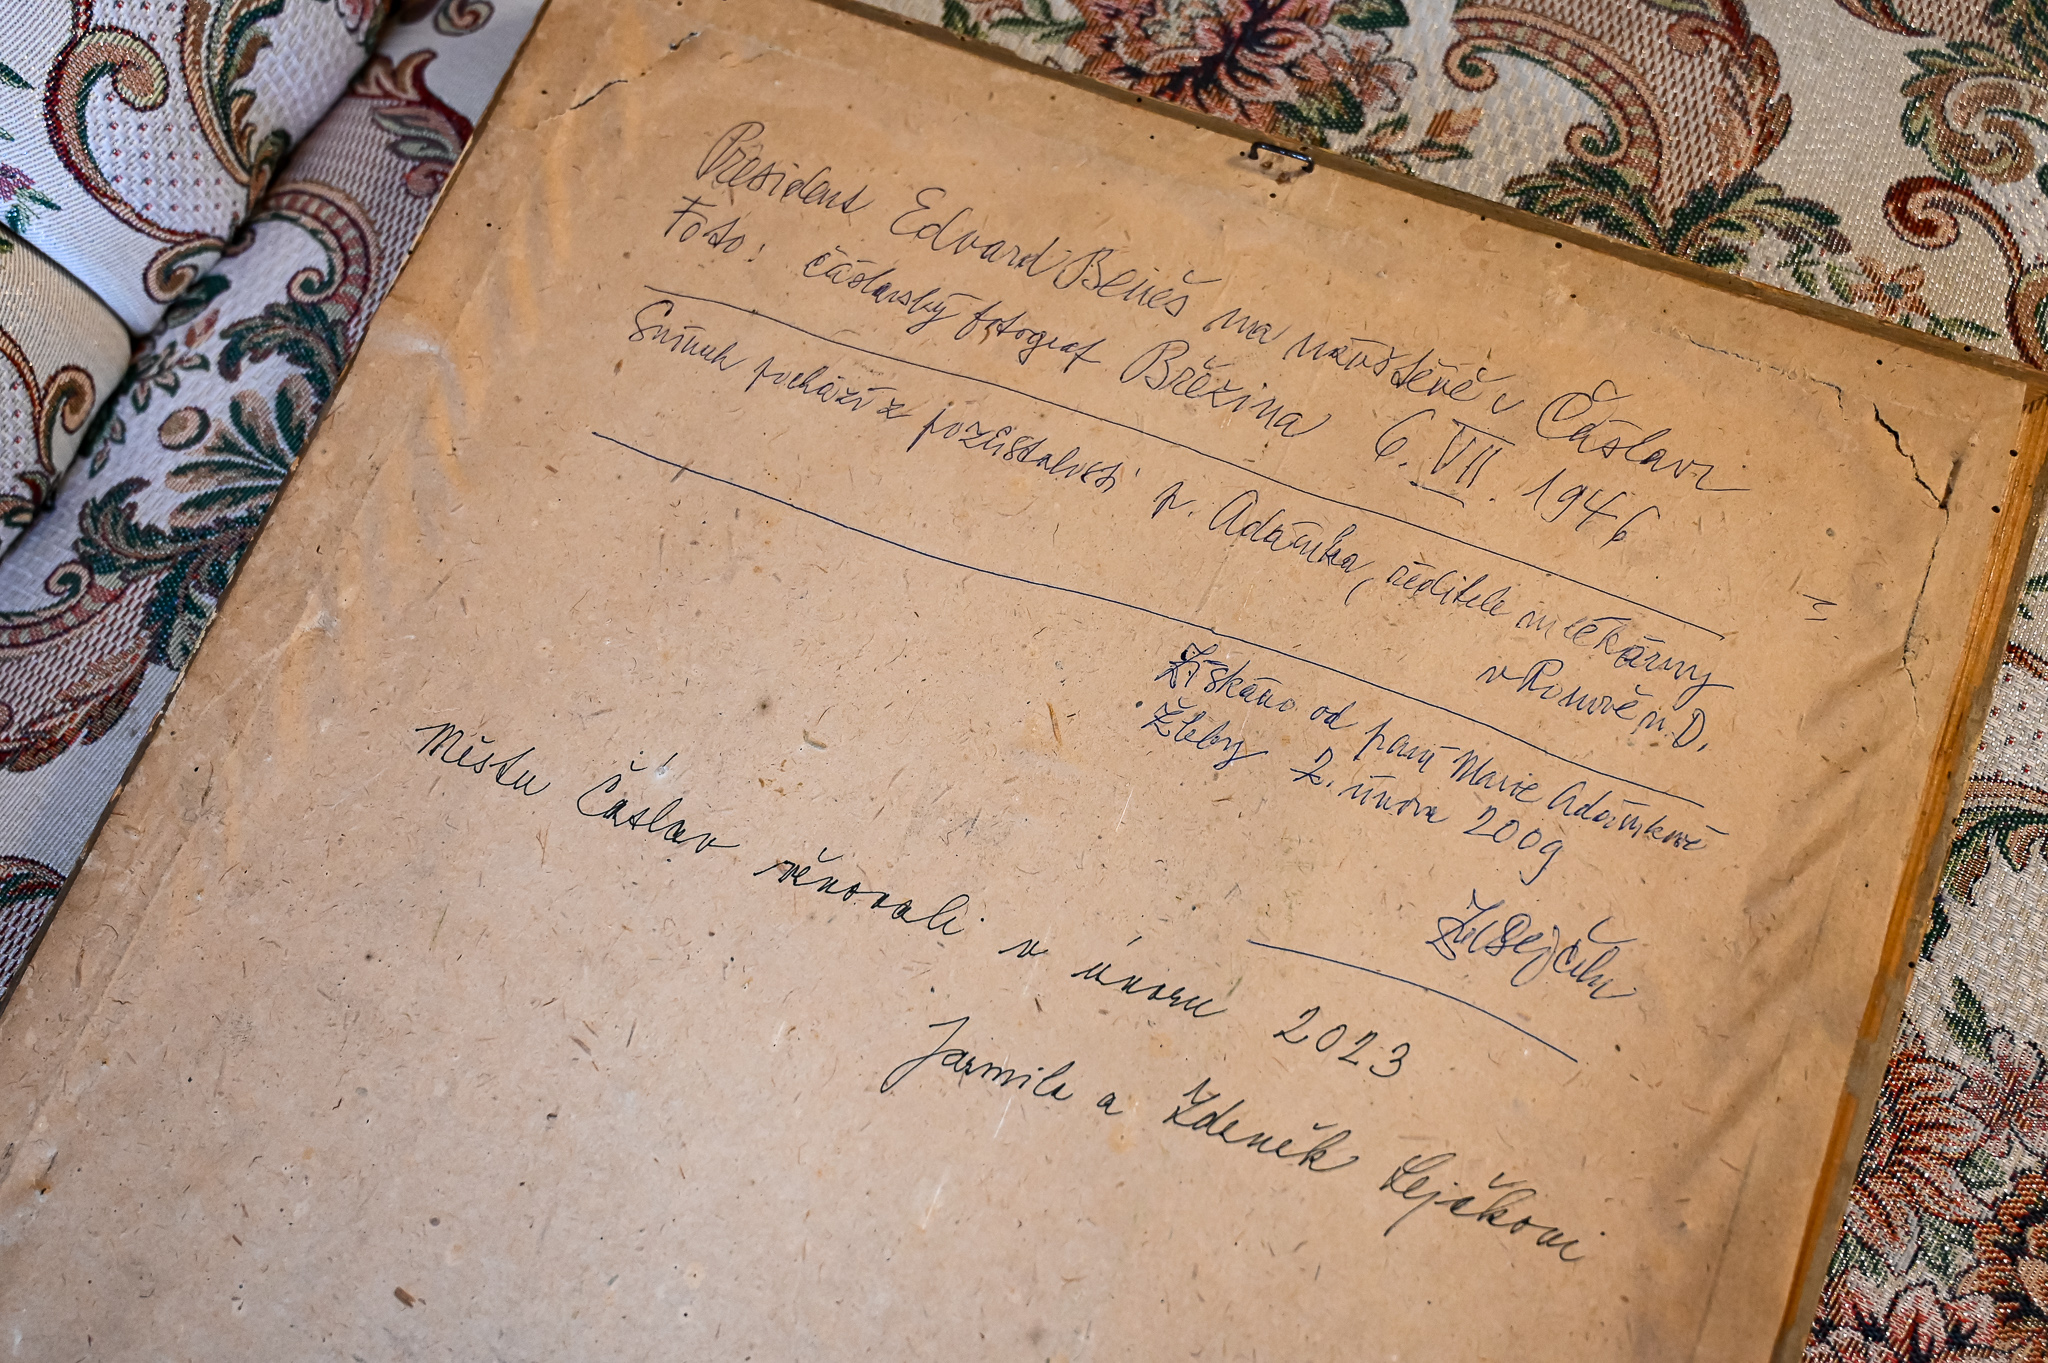 President Edvard Beneš na návštěvě v Čáslavi
Foto: čáslavský fotograf Březina 6. VII. 1946
Snímek pochází z pozůstalosti p. Adámka, ředitele mlékárny
v Ronově n. D.
Získáno od paní Marie Adámkové
Žleby 2. února 2009
Městu Čáslav věnovali v únoru 2023
Jarmila a Zdeněk Lejčkovi